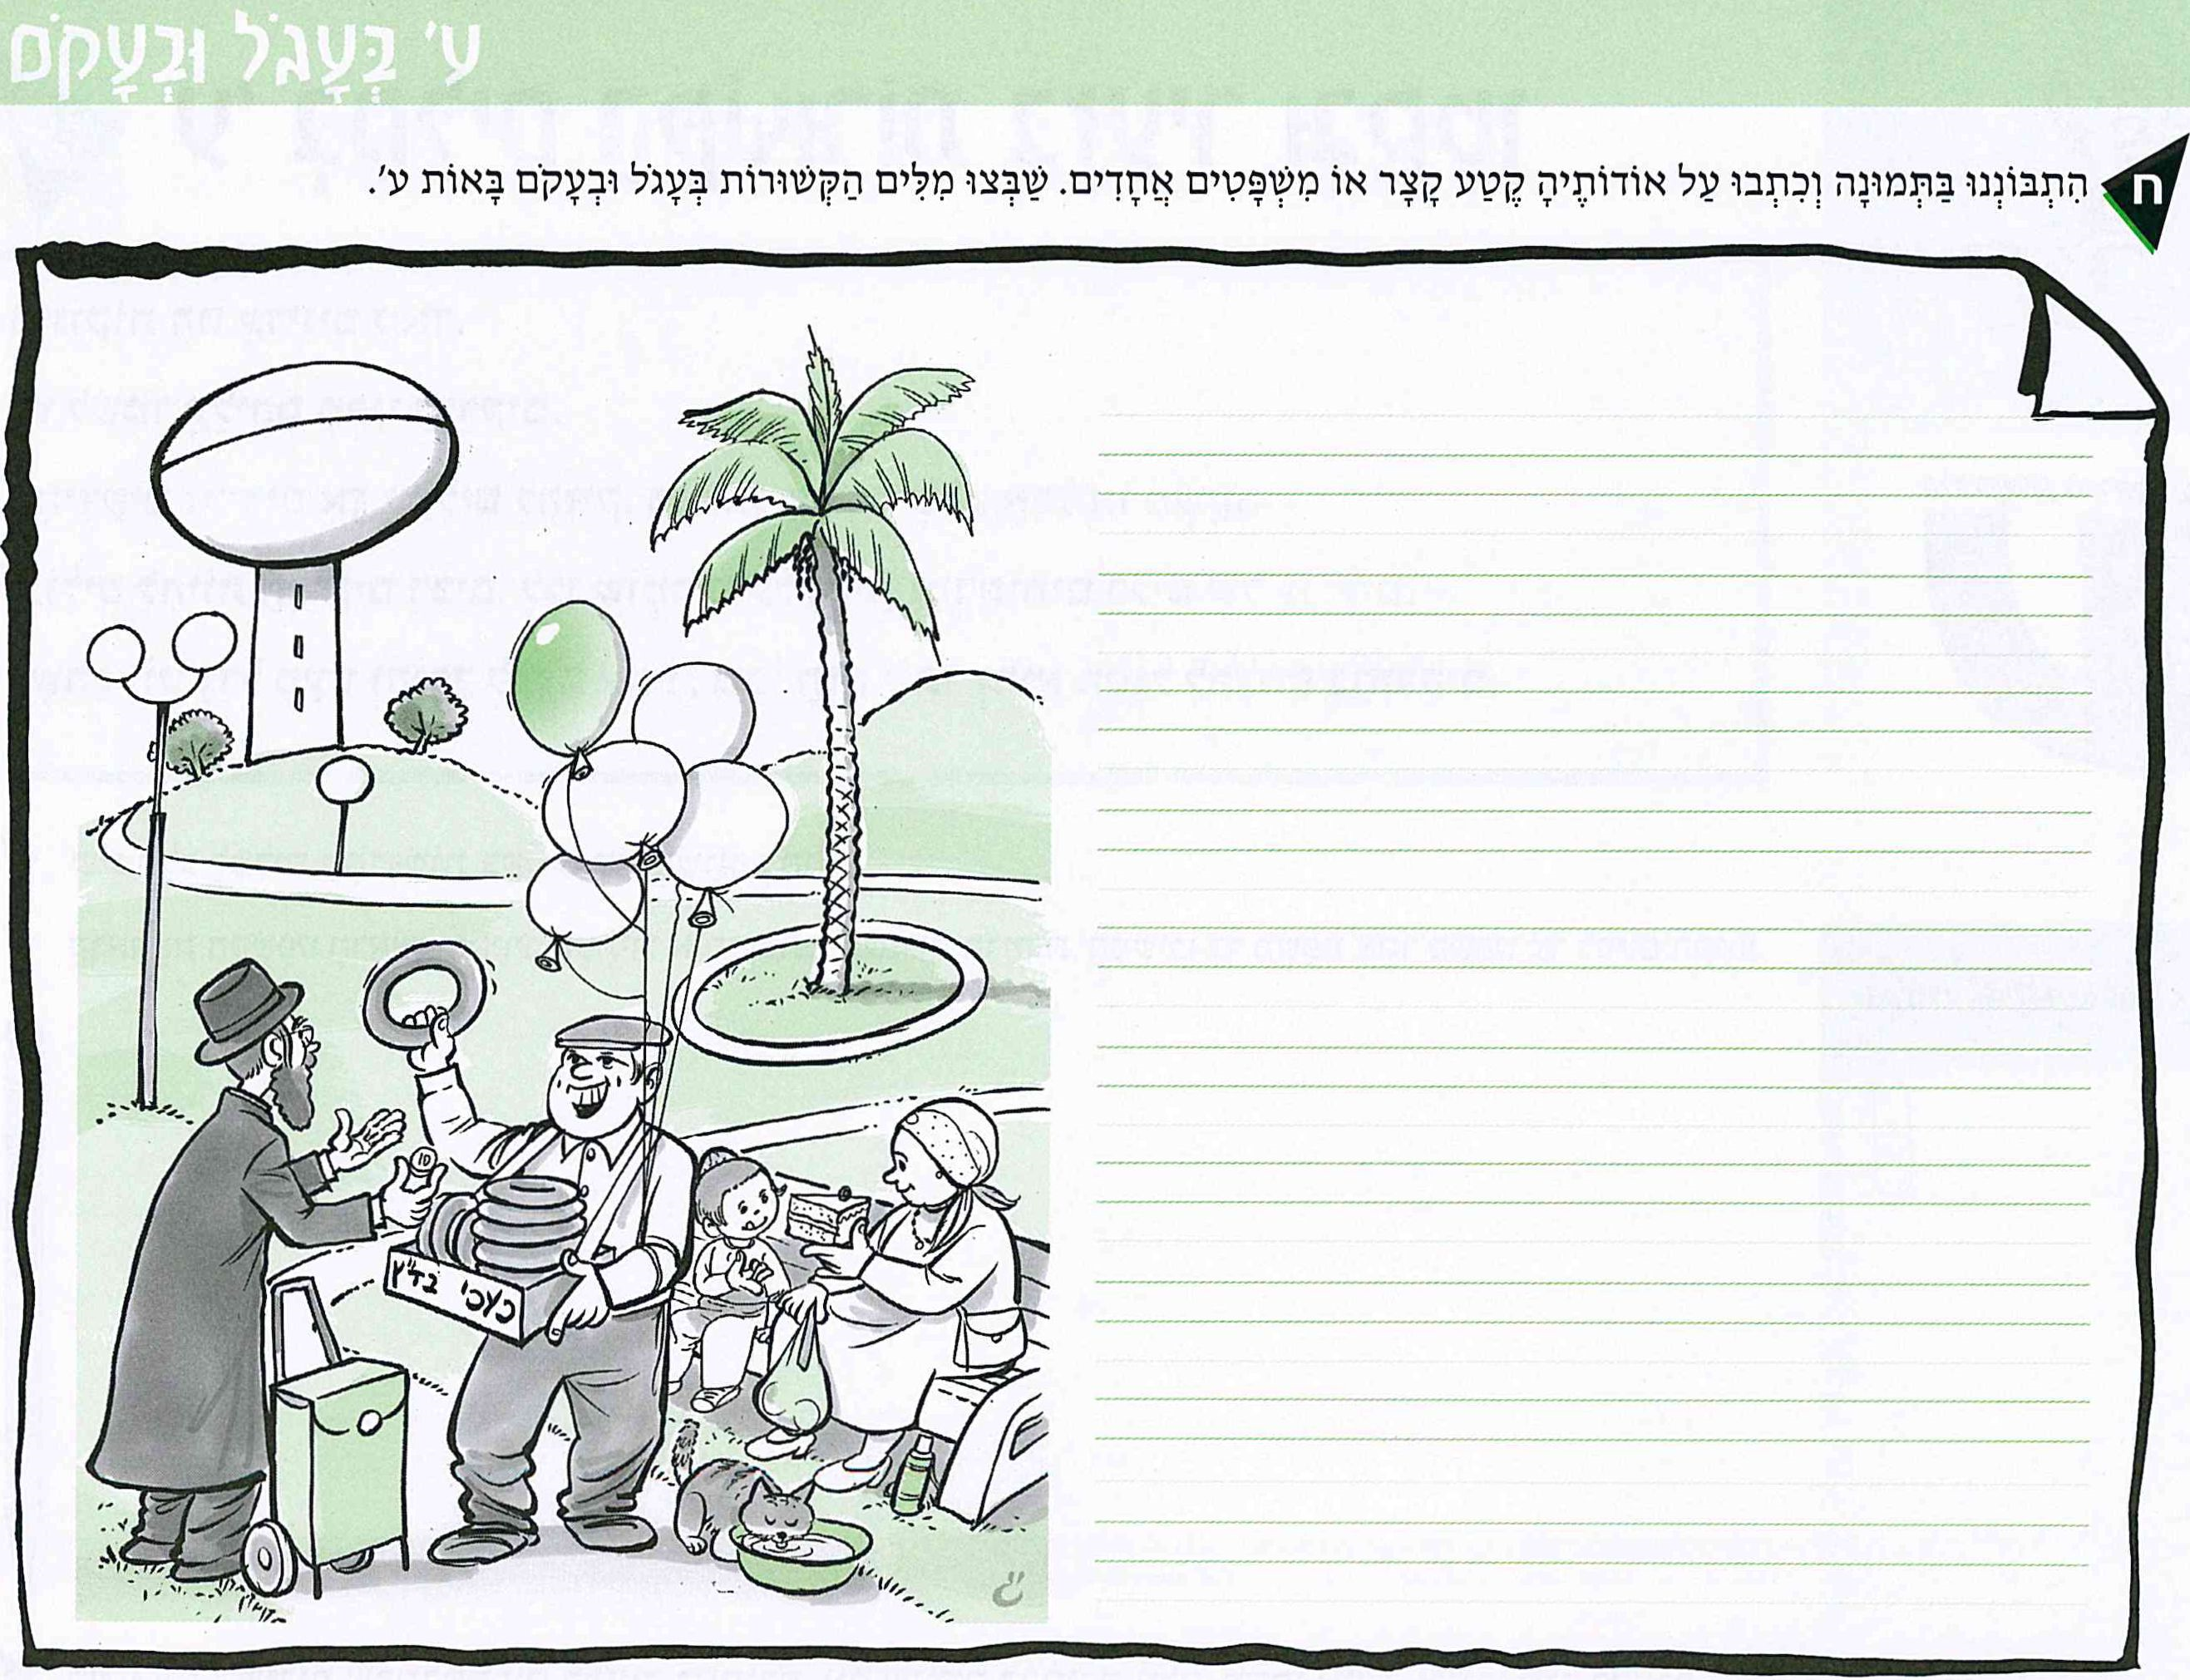 ע' בְּעָגֹל וּבְעָקֹם
ח
הִתְבּוֹנְנוּ בַּתְּמוּנָה וְכִתְבוּ עַל אוֹדוֹתֶיהָ קֶטַע קָצָר אוֹ מִשְׁפָּטִים אֲחָדִים. שַׁבְּצוּ מִלִּים הַקְּשׁוּרוֹת בְּעָגֹל וּבְעָקֹם בָּאוֹת ע'.
10
כעכי בד"ץ